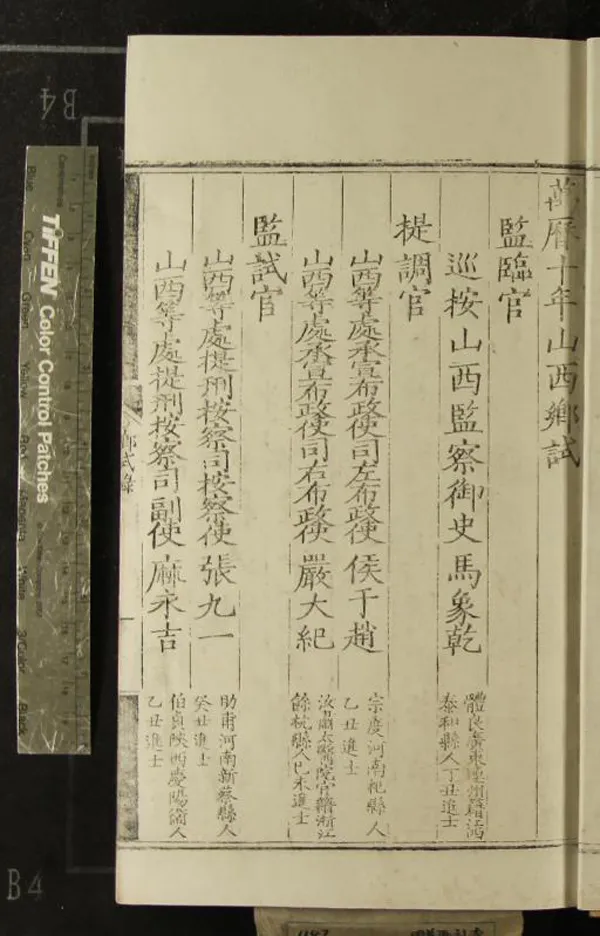 萬曆十年山西鄉試
監臨官
巡按山西監察御史馬象乾
體良廣東連州籍江西
泰和縣人丁丑進士
提調官
山西等處承宣布政使司左布政使侯于趙
宗度河南杞縣人
乙丑進士
山西等處承宣布政使司右布政使嚴大紀
汝肅太醫院官籍浙江
餘杭縣人己未進士
監試官
山西等處提刑按察司按察使張九一
助甫河南新蔡縣人
癸丑進士
山西等處提刑按察司副使麻永吉
伯貞陝西慶陽衛人
乙丑進士
鄉試錄
一
TIFFEN Color Control Patches
B4
B4